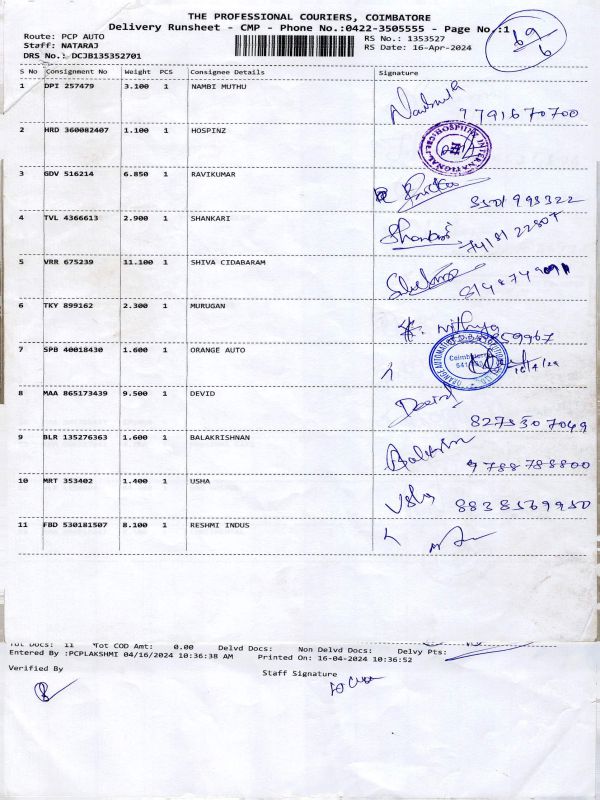 THE PROFESSIONAL COURIERS, COIMBATORE
Delivery Runsheet - CMP - Phone No.:0422-3505555 - Page No.:1
69
6
Route: PCP AUTO
RS No.: 1353527
Staff: NATARAJ
RS Date: 16-Apr-2024
DRS No.: DCJB135352701
S No Consignment No Weight PCS Consignee Details Signature
1 DPI 257479 3.100 1 NAMBI MUTHU
9791670700
2 HRD 360082407 1.100 1 HOSPINZ
HOSPINZ INTERNATIONAL
3 GDV 516214 6.850 1 RAVIKUMAR
4 TVL 4366613 2.900 1 SHANKARI
Shankari 7418122807
5 VRR 675239 11.100 1 SHIVA CIDABARAM
6 TKY 899162 2.300 1 MURUGAN
Nithya
7 SPB 40018430 1.600 1 ORANGE AUTO
ORANGE AUTOMATION
Coimbatore
16/4/24
8 MAA 865173439 9.500 1 DEVID
David
9 BLR 135276363 1.600 1 BALAKRISHNAN
Balakrishn
9788788800
10 MRT 353402 1.400 1 USHA
Usha 8838569950
11 FBD 530181507 8.100 1 RESHMI INDUS
Tot Docs: 11 Tot COD Amt: 0.00 Delvd Docs: Non Delvd Docs: Delvy Pts:
Entered By :PCPLAKSHMI 04/16/2024 10:36:38 AM Printed On: 16-04-2024 10:36:52
Verified By
Staff Signature